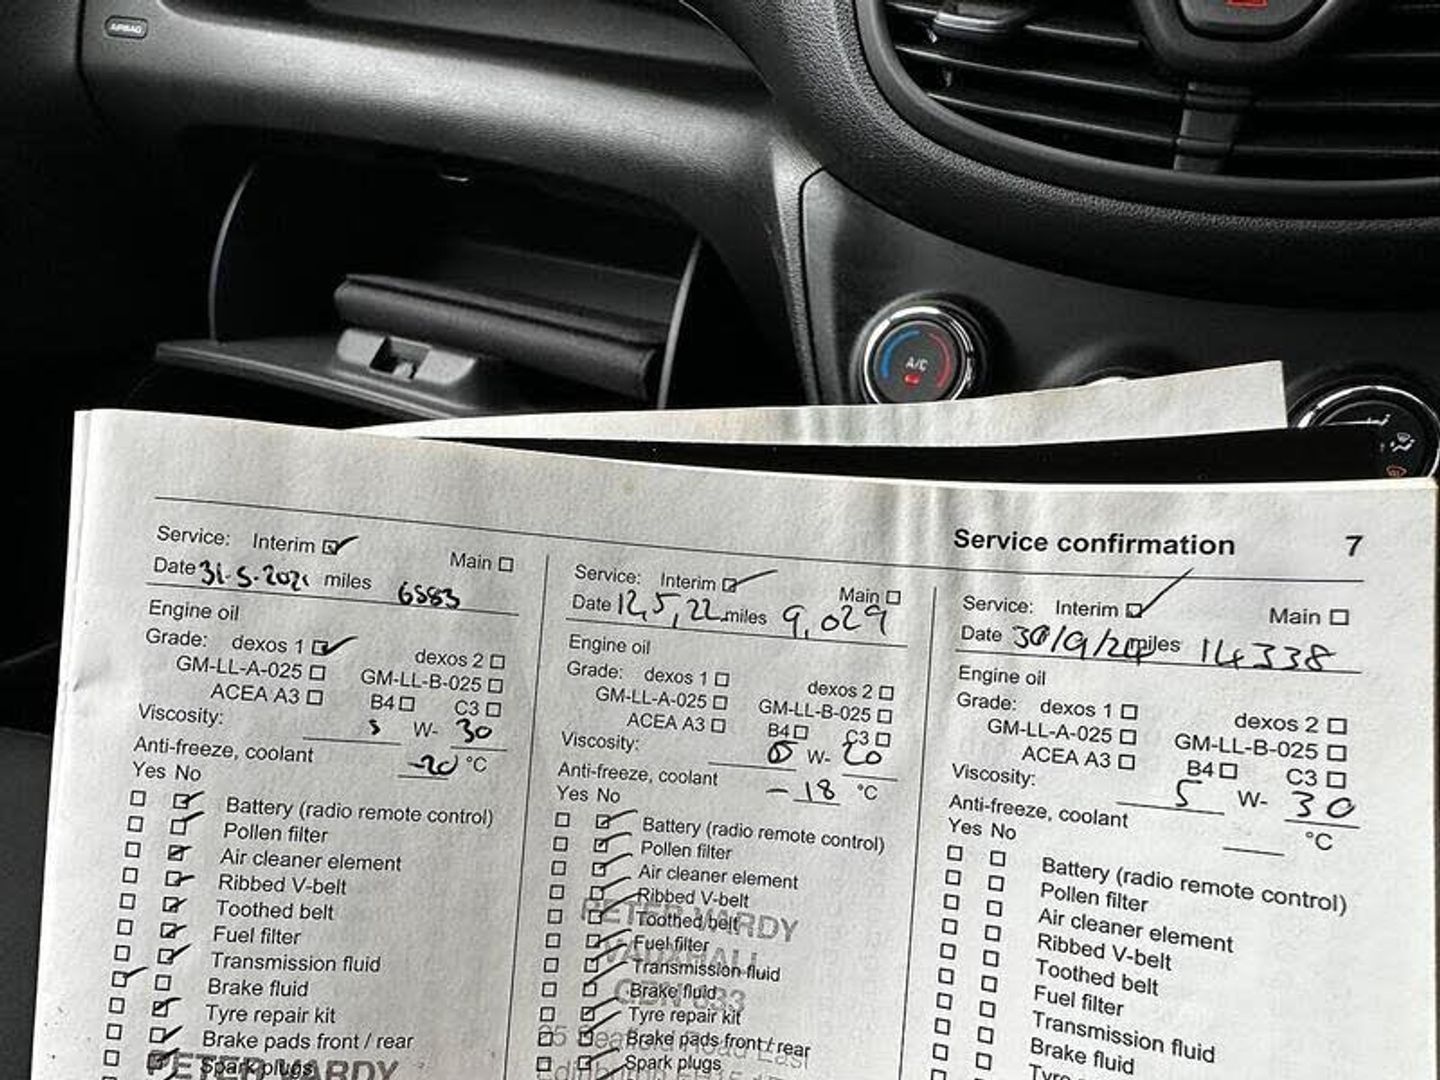 AIRBAG
A/C
Service confirmation 7
Service: Interim Main
Date 31-5-2021 miles 6583
Engine oil
Grade: dexos 1 dexos 2
GM-LL-A-025 GM-LL-B-025
ACEA A3 B4 C3
Viscosity: 5 W- 30
Anti-freeze, coolant -20 °C
Yes No
Battery (radio remote control)
Pollen filter
Air cleaner element
Ribbed V-belt
Toothed belt
Fuel filter
Transmission fluid
Brake fluid
Tyre repair kit
Brake pads front / rear
Spark plugs
PETER VARDY
Service: Interim Main
Date 12,5,22 miles 9,029
Engine oil
Grade: dexos 1 dexos 2
GM-LL-A-025 GM-LL-B-025
ACEA A3 B4 C3
Viscosity: 0 W- 20
Anti-freeze, coolant -18 °C
Yes No
Battery (radio remote control)
Pollen filter
Air cleaner element
Ribbed V-belt
PETER VARDY
Toothed belt
Fuel filter
VAUXHALL
Transmission fluid
Brake fluid
Tyre repair kit
Brake pads front / rear
Seafield Road East
Spark plugs
Edinburgh
Service: Interim Main
Date 30/9/24 miles 14338
Engine oil
Grade: dexos 1 dexos 2
GM-LL-A-025 GM-LL-B-025
ACEA A3 B4 C3
Viscosity: 5 W- 30
Anti-freeze, coolant °C
Yes No
Battery (radio remote control)
Pollen filter
Air cleaner element
Ribbed V-belt
Toothed belt
Fuel filter
Transmission fluid
Brake fluid